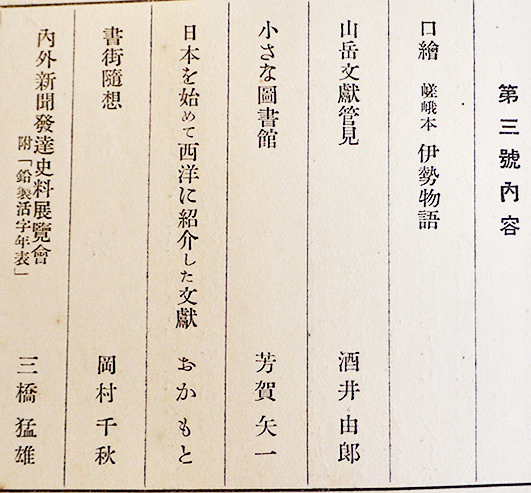 第三號內容
口繪 嵯峨本 伊勢物語
山岳文獻管見 酒井由郎
小さな圖書館 芳賀矢一
日本を始めて西洋に紹介した文獻 おかもと
書街隨想 岡村千秋
內外新聞發達史料展覽會 三橋猛雄
附「鉛製活字年表」